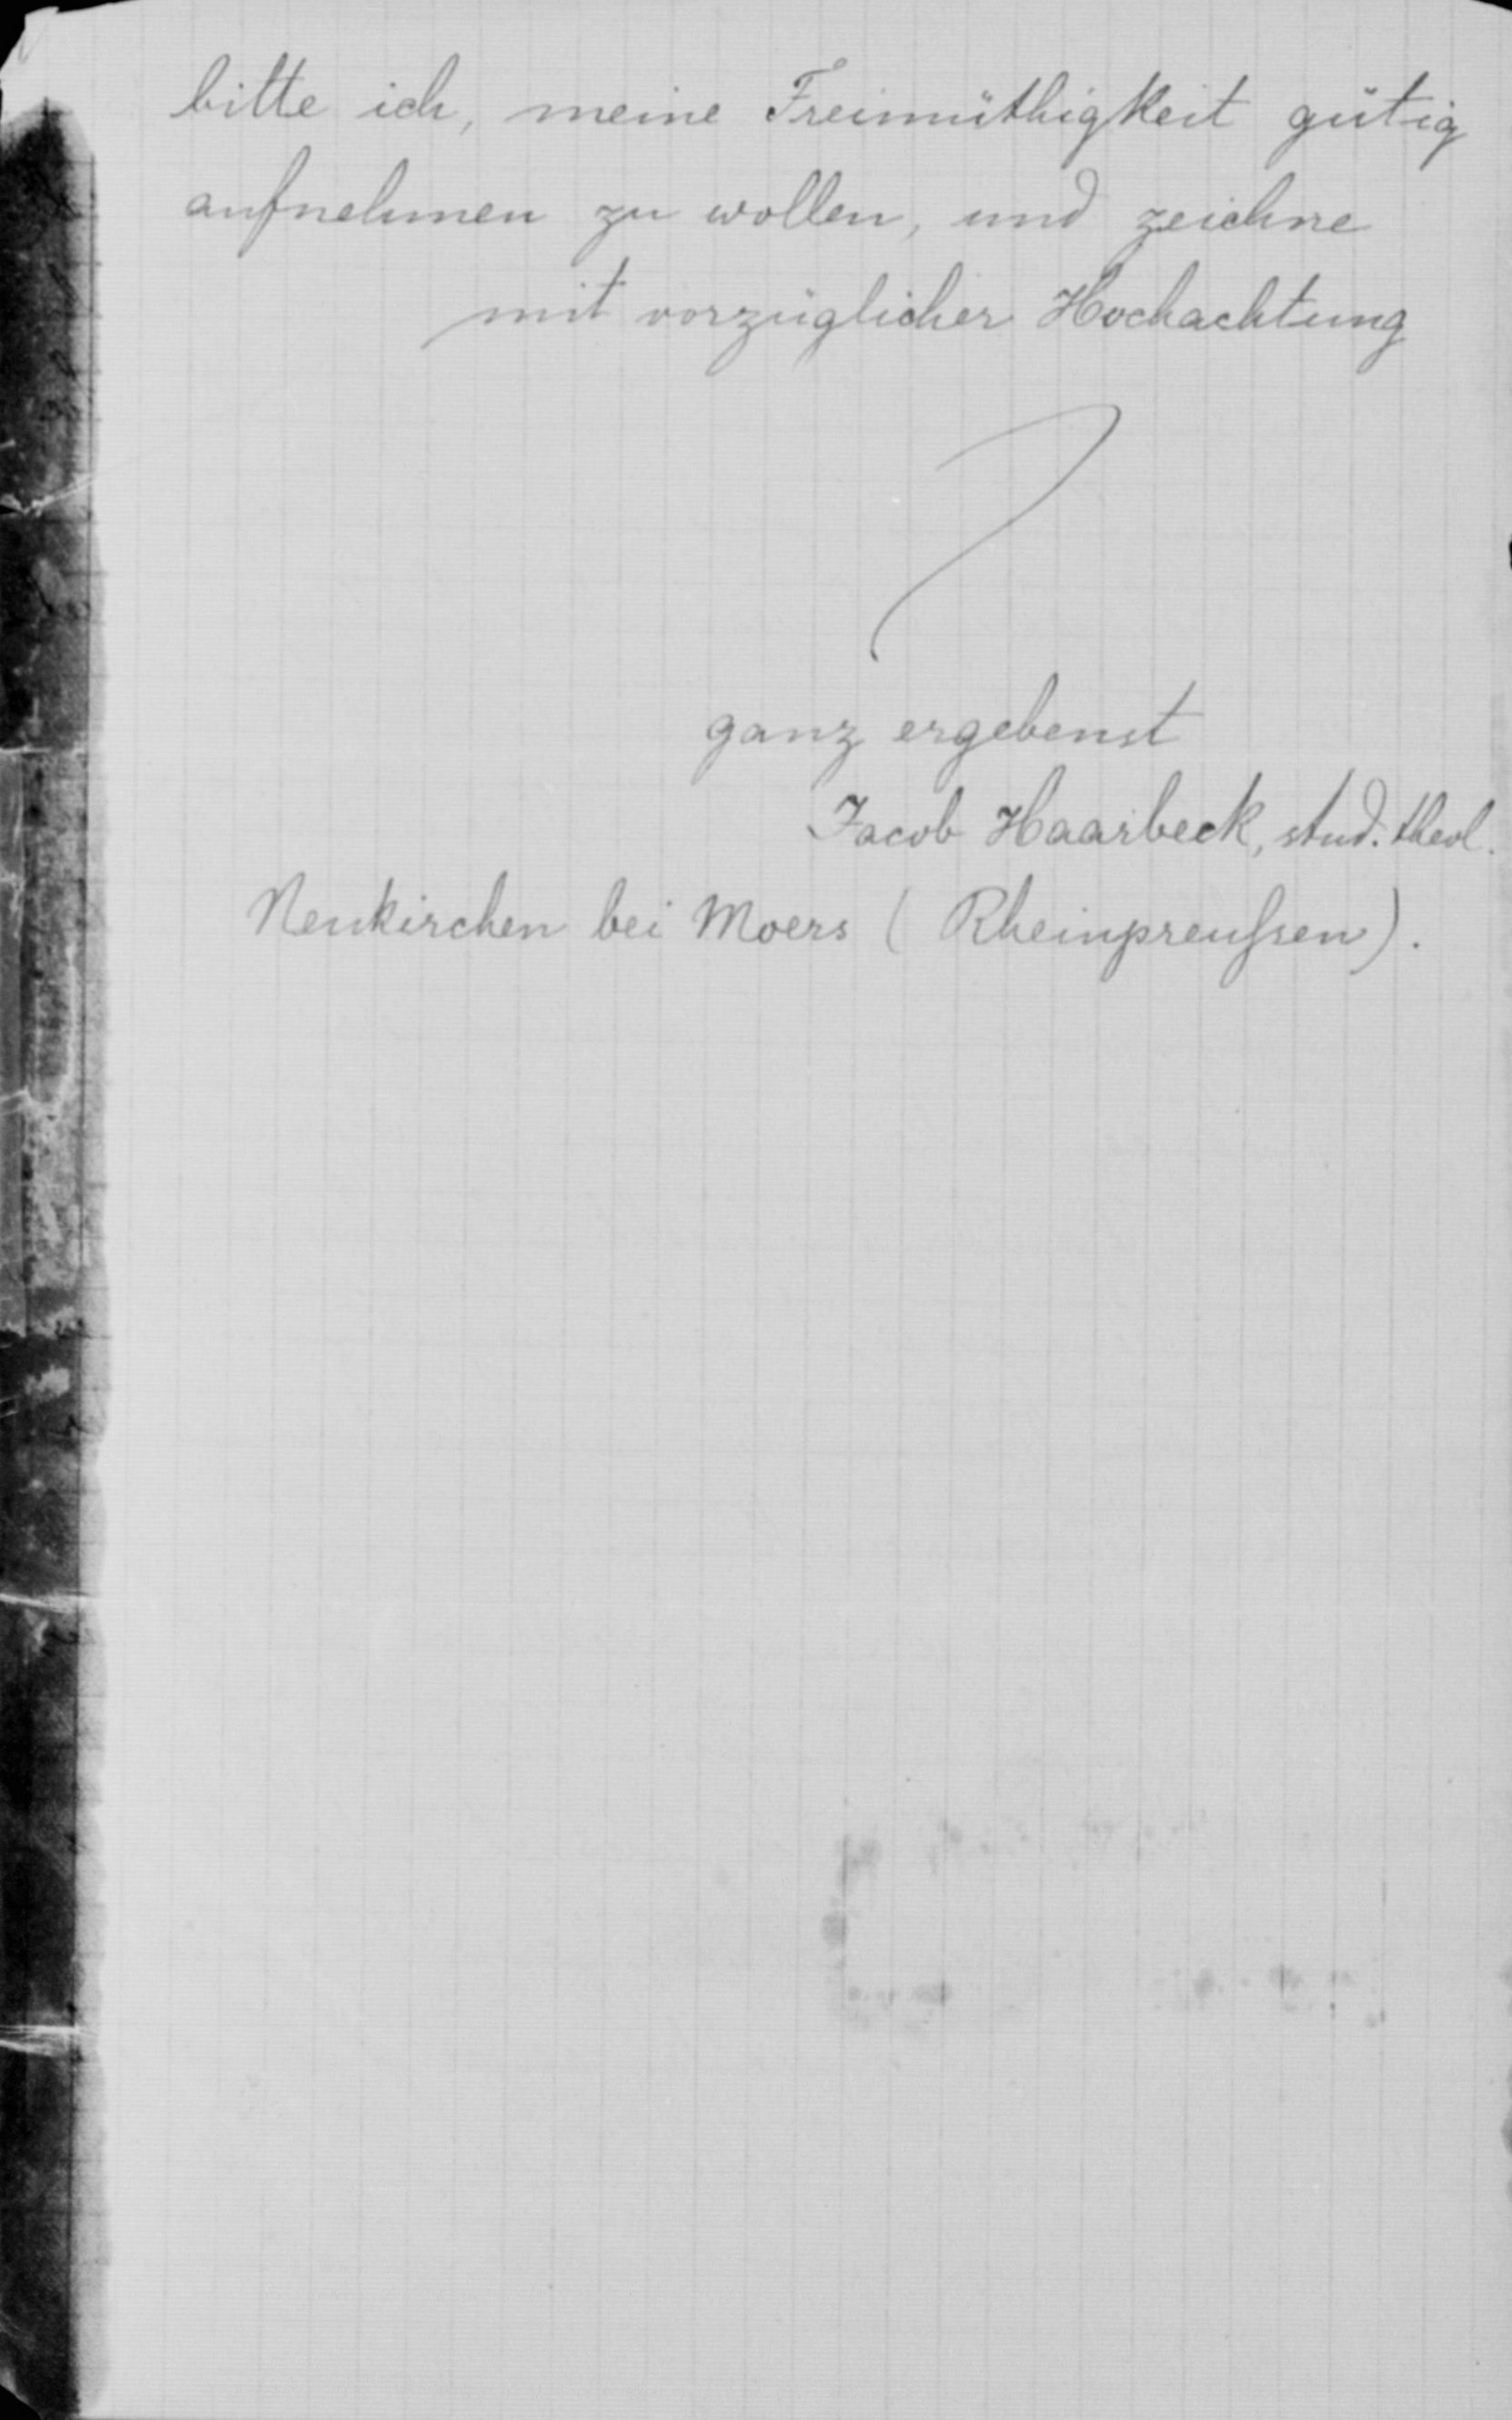 bitte ich, meine Freimüthigkeit gütig
aufnehmen zu wollen, und zeichne
mit vorzüglicher Hochachtung
ganz ergebenst
Jacob Haarbeck, stud. theol.
Neukirchen bei Moers (Rheinpreußen).